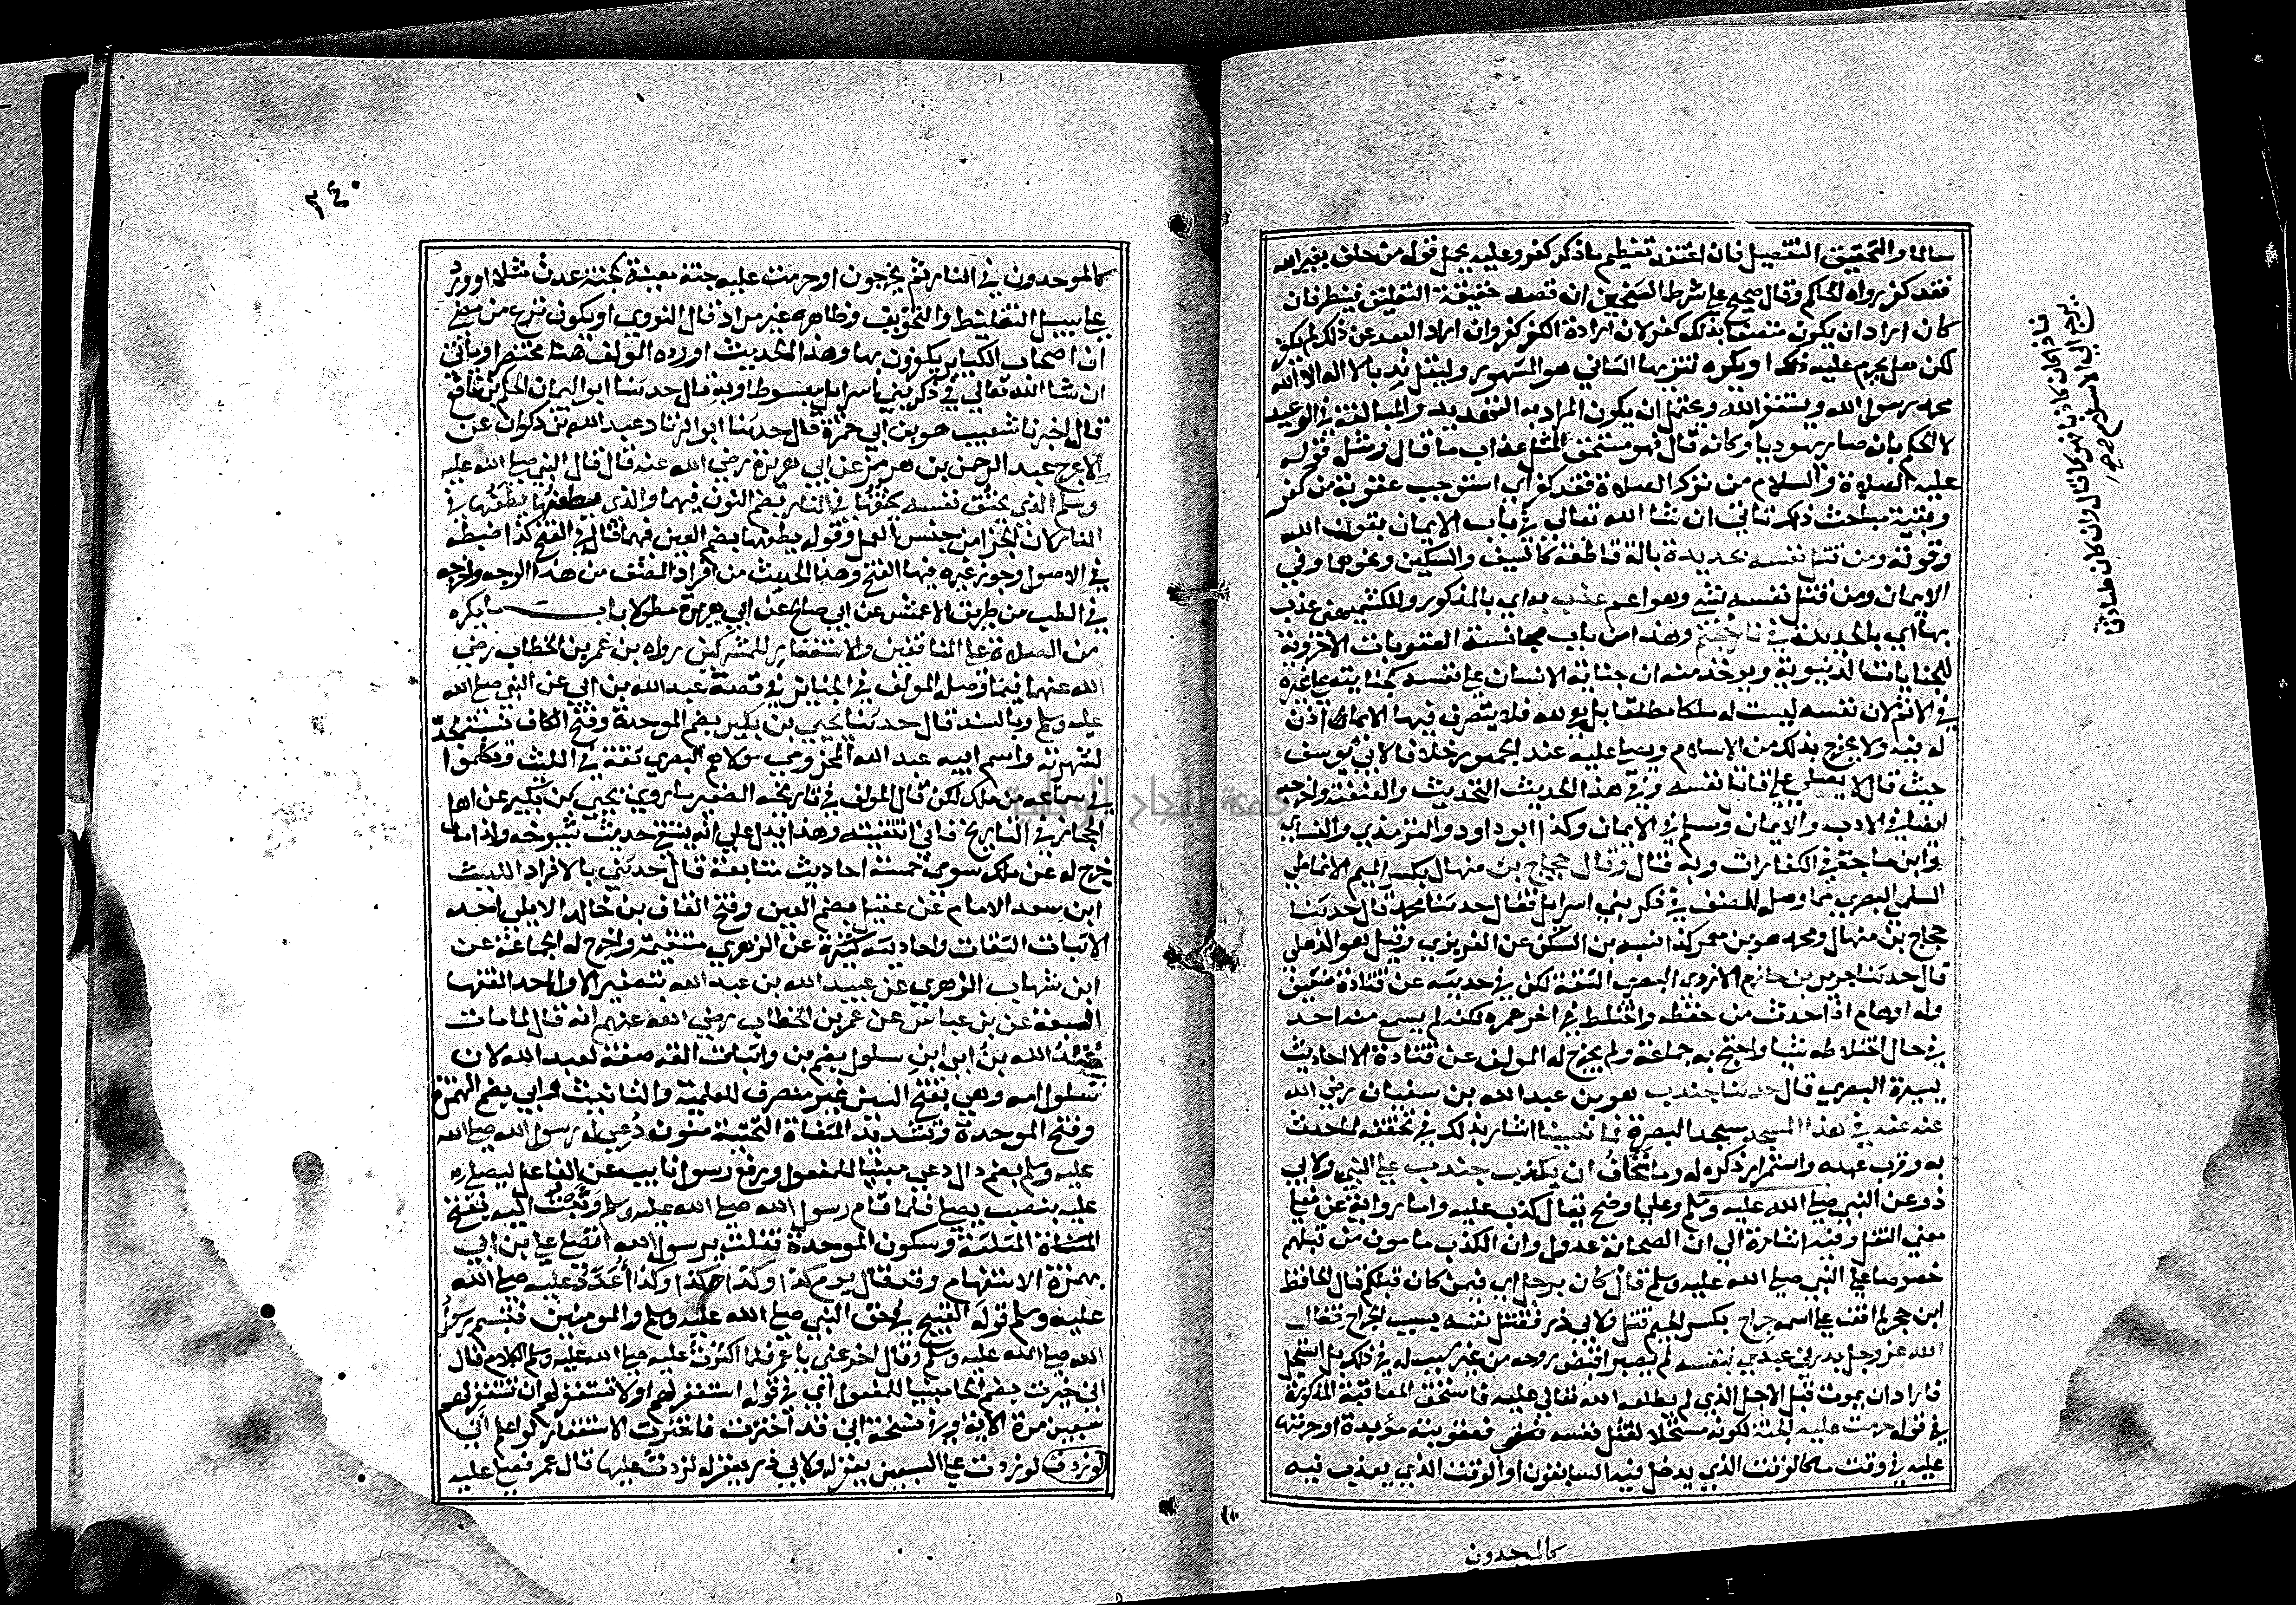 سالما والتحقيق التفصيل فان اعتقد تعظيم ما ذكر كفر وعليه يحمل قوله من حلف بغير الله
فقد كفر رواه الحاكم وقال صحيح على شرط الشيخين ان قصد حقيقة التعليق فينظر فان
كان اراد ان يكون متصفا بذلك كفر لان ارادة الكفر كفر وان اراد البعد عن ذلك لم يكفر
لكن هل يحرم عليه ذلك او يكره تنزيها الثاني هو المشهور وليقل ندبا لا اله الا الله
محمد رسول الله ويستغفر الله ويحتمل ان يكون المراد به التهديد والمبالغة في الوعيد
لا الحكم بان صار يهوديا وكانه قال فهو مستحق لمثل عذاب ما قال ومثل قوله
عليه الصلاة والسلام من ترك الصلاة فقد كفر اي استوجب عقوبة من كفر
وبقية مباحث ذلك تاتي ان شا الله تعالى في باب الايمان بعون الله
وقوته ومن قتل نفسه بحديدة بالة قاطعة كالسيف والسكين ونحوهما وفي
الايمان ومن قتل نفسه بشي وهو اعم عذب به اي بالمذكور وللكشميهني عذب
بها اي بالحديدة في نار جهنم وهذا من باب مجانسة العقوبات الاخروية
للجنايات الدنيوية ويوخذ منه ان جناية الانسان على نفسه كجنايته على غيره
في الاثم لان نفسه ليست له ملكا مطلقا بل هي لله فلا يتصرف فيها الا بما اذن
له فيه ولا يخرج بذلك من الاسلام ويصلى عليه عند الجمهور خلافا لابي يوسف
حيث قال لا يصلى على قاتل نفسه وفي هذا الحديث التحديث والعنعنة واخرجه
ايضا في الادب والايمان ومسلم في الايمان وكذا ابو داود والترمذي والنسائي
وابن ماجة في الكفارات وبه قال وقال حجاج بن منهال بكسر الميم الانماطي
السلمي البصري مما وصله المصنف في ذكر بني اسرايل فقال حدثنا محمد قال حدثنا
حجاج بن منهال ومحمد هو بن معمر كذا نسبه بن السكن عن الفربري وقيل هو الذهلي
قال حدثنا جرير بن حازم الازدي البصري الثقة لكن في حديثه عن قتادة ضعف
وله اوهام اذا حدث من حفظه واختلط في اخر عمره لكنه لم يسمع منه احد
في حال اختلاطه شيا واحتج به جماعة ولم يخرج له المولف عن قتادة الا احاديث
يسيرة البصري قال حدثنا جندب هو بن عبد الله بن سفيان رضي الله
عنه في هذا المسجد مسجد البصرة فما نسينا اشار بذلك في تحققه لما حدث
به وقرب عهده واستمرار ذكره له وما نخاف ان يكذب جندب على النبي ولابي
ذر عن النبي صلى الله عليه وسلم وعلى اوضح يقال كذب عليه واما رواية عن فعلى
معنى النقل وفيه اشارة الى ان الصحابة عدول وان الكذب مامون من قبلهم
خصوصا على النبي صلى الله عليه وسلم قال كان برجل اي فيمن كان قبلكم قال الحافظ
ابن حجر لم اقف على اسمه جراح بكسر الجيم قتل ولابي ذر فقتل نفسه بسبب الجراح فقال
الله عز وجل بدرني عبدي بنفسه لم يصبر اقبض روحه من غير سبب له في ذلك بل استعجل
فاراد ان يموت قبل الاجل الذي لم يطلعه الله تعالى عليه فاستحق المعاقبة المذكورة
في قوله حرمت عليه الجنة لكونه مستحلا لقتل نفسه فعقوبته مؤبدة او حرمتها
عليه في وقت ما كالوقت الذي يدخل فيه السابقون او الوقت الذي يعذب فيه
كالموحدون
فاذا كان كاذبا فهو كما قال وان كان صادقا
يرجع الى الاسلام صح
٢٤٠
كالموحدون في النار ثم يخرجون او حرمت عليه جنة معينة كجنة عدن مثلا او ورد
على سبيل التغليظ والتخويف وظاهره غير مراد قال النووي او يكون شرع من مضى
ان اصحاب الكباير يكفرون بها وهذا الحديث اورده المولف هنا مختصرا وياتي
ان شا الله تعالى في ذكر بني اسرايل مبسوطا وبه قال حدثنا ابو اليمان الحكم بن نافع
قال اخبرنا شعيب هو بن ابي حمزة قال حدثنا ابو الزناد عبد الله بن ذكوان عن
الاعرج عبد الرحمن بن هرمز عن ابي هريرة رضي الله عنه قال قال النبي صلى الله عليه
وسلم الذي يخنق نفسه يخنقها في النار بضم النون فيهما والذي يطعنها يطعنها في
النار لان الجزا من جنس العمل وقوله يطعنها بضم العين فيهما قال في الفتح كذا ضبطه
في الاصول وجوز غيره فيها الفتح وهذا الحديث من افراد المصنف من هذا الوجه واخرجه
في الطب من طريق الاعمش عن ابي صالح عن ابي هريرة مطولا باب ما يكره
من الصلاة على المنافقين والاستغفار للمشركين رواه بن عمر بن الخطاب رضي
الله عنهما فيما وصله المولف في الجنايز في قصة عبد الله بن ابي عن النبي صلى الله
عليه وسلم وبالسند قال حدثنا يحيى بن بكير بضم الموحدة وفتح الكاف نسبه لجده
لشهرته واسم ابيه عبد الله المخزومي مولاهم البصري ثقة في الليث وتكلموا
في سماعه من ملك لكن قال المولف في تاريخه الصغير ما روى يحيى بن بكير عن اهل
الحجاز في التاريخ فاني انتقيته وهذا يدل على انه ينتقي حديث شيوخه ولذا ما
خرج له عن ملك سوى خمسة احاديث متابعة قال حدثني بالافراد الليث
ابن سعد الامام عن عقيل بضم العين وفتح القاف بن خالد الايلي احد
الاثبات الثقات واحاديثه كثيرة عن الزهري مستقيمة واخرج له الجماعة عن
ابن شهاب الزهري عن عبيد الله بن عبد الله بتصغير الاول احد الفقها
السبعة عن بن عباس عن عمر بن الخطاب رضي الله عنهم انه قال لما مات
عبد الله بن ابي ابن سلول بضم بن واثبات الفه صفة لعبد الله لان
سلول امه وهي بفتح السين غير منصرف للعلمية والتانيث وابي بضم الهمزة
وفتح الموحدة وتشديد المثناة التحتية منون دعي له رسول الله صلى الله
عليه وسلم بضم دال دعي مبنيا للمفعول ورفع رسول نايب عن الفاعل ليصلي
عليه بنصب يصلي فلما قام رسول الله صلى الله عليه وسلم وثبت اليه بفتح
المثلثة وسكون الموحدة فقلت يا رسول الله اتصلي على بن ابي
بهمزة الاستفهام وقد قال يوم كذا وكذا كذا وكذا اعدد عليه صلى الله
عليه وسلم قوله القبيح في حق النبي صلى الله عليه وسلم والمومنين فتبسم رسول
الله صلى الله عليه وسلم وقال اخر عني يا عمر فلما اكثرت عليه صلى الله عليه وسلم الكلام قال
اني خيرت بضم الخا مبنيا للمفعول اي في قوله استغفر لهم او لا تستغفر لهم ان تستغفر لهم
سبعين مرة الاية وفي نسخة اني قد اخترت فاخترت الاستغفار لو اعلم اني
لو زدت لو زدت على السبعين يغفر له ولابي ذر يغفر له لزدت عليها قال عمر فصلى عليه